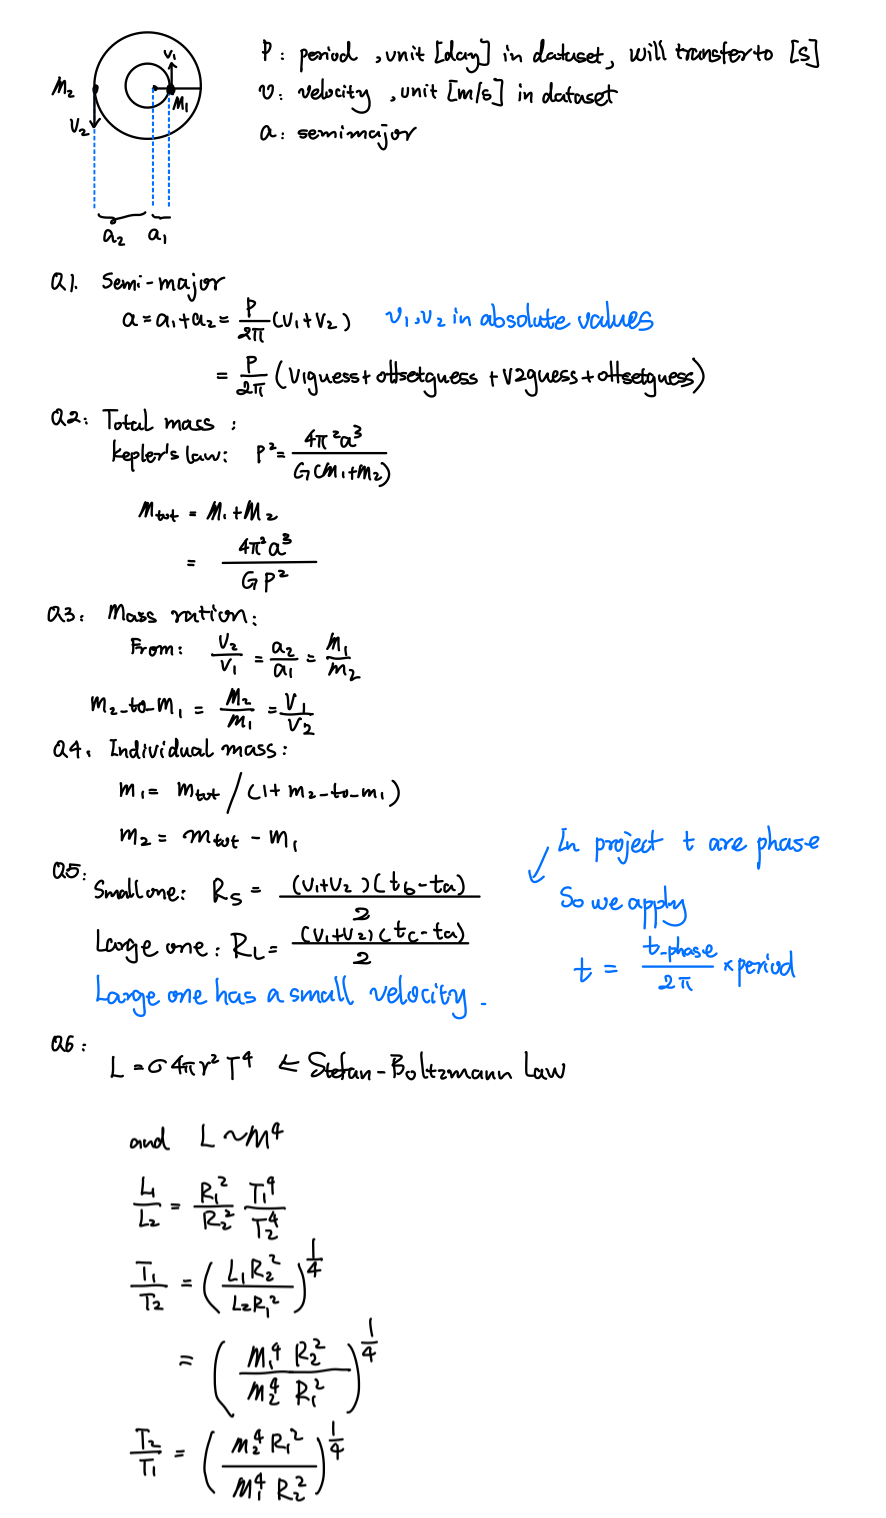 V₁
M₂
M₁
V₂
a₂ a₁
P: period, unit [day] in dataset, will transfer to [s]
v: velocity, unit [m/s] in dataset
a: semimajor
Q1. Semi-major
a = a₁ + a₂ = P/2π (V₁ + V₂) v₁, v₂ in absolute values
= P/2π (V1guess + offsetguess + V2guess + offsetguess)
Q2: Total mass:
kepler's law: P² = 4π²a³ / G(M₁+M₂)
Mtot = M₁ + M₂
= 4π²a³ / GP²
Q3: Mass ration:
From: V₂/V₁ = a₂/a₁ = M₁/M₂
m₂_to_m₁ = M₂/M₁ = V₁/V₂
Q4. Individual mass:
m₁ = mtot / (1 + m₂_to_m₁)
m₂ = mtot - m₁
In project t are phase
So we apply
t = t_phase/2π × period
Q5:
Small one: Rs = (V₁+V₂)(tb - ta) / 2
Large one: RL = (V₁+V₂)(tc - ta) / 2
Large one has a small velocity.
Q6:
L = σ4πr²T⁴ ← Stefan-Boltzmann Law
and L ~ M⁴
L₁/L₂ = R₁²/R₂² T₁⁴/T₂⁴
T₁/T₂ = (L₁R₂² / L₂R₁²)^1/4
= (M₁⁴ R₂² / M₂⁴ R₁²)^1/4
T₂/T₁ = (M₂⁴ R₁² / M₁⁴ R₂²)^1/4